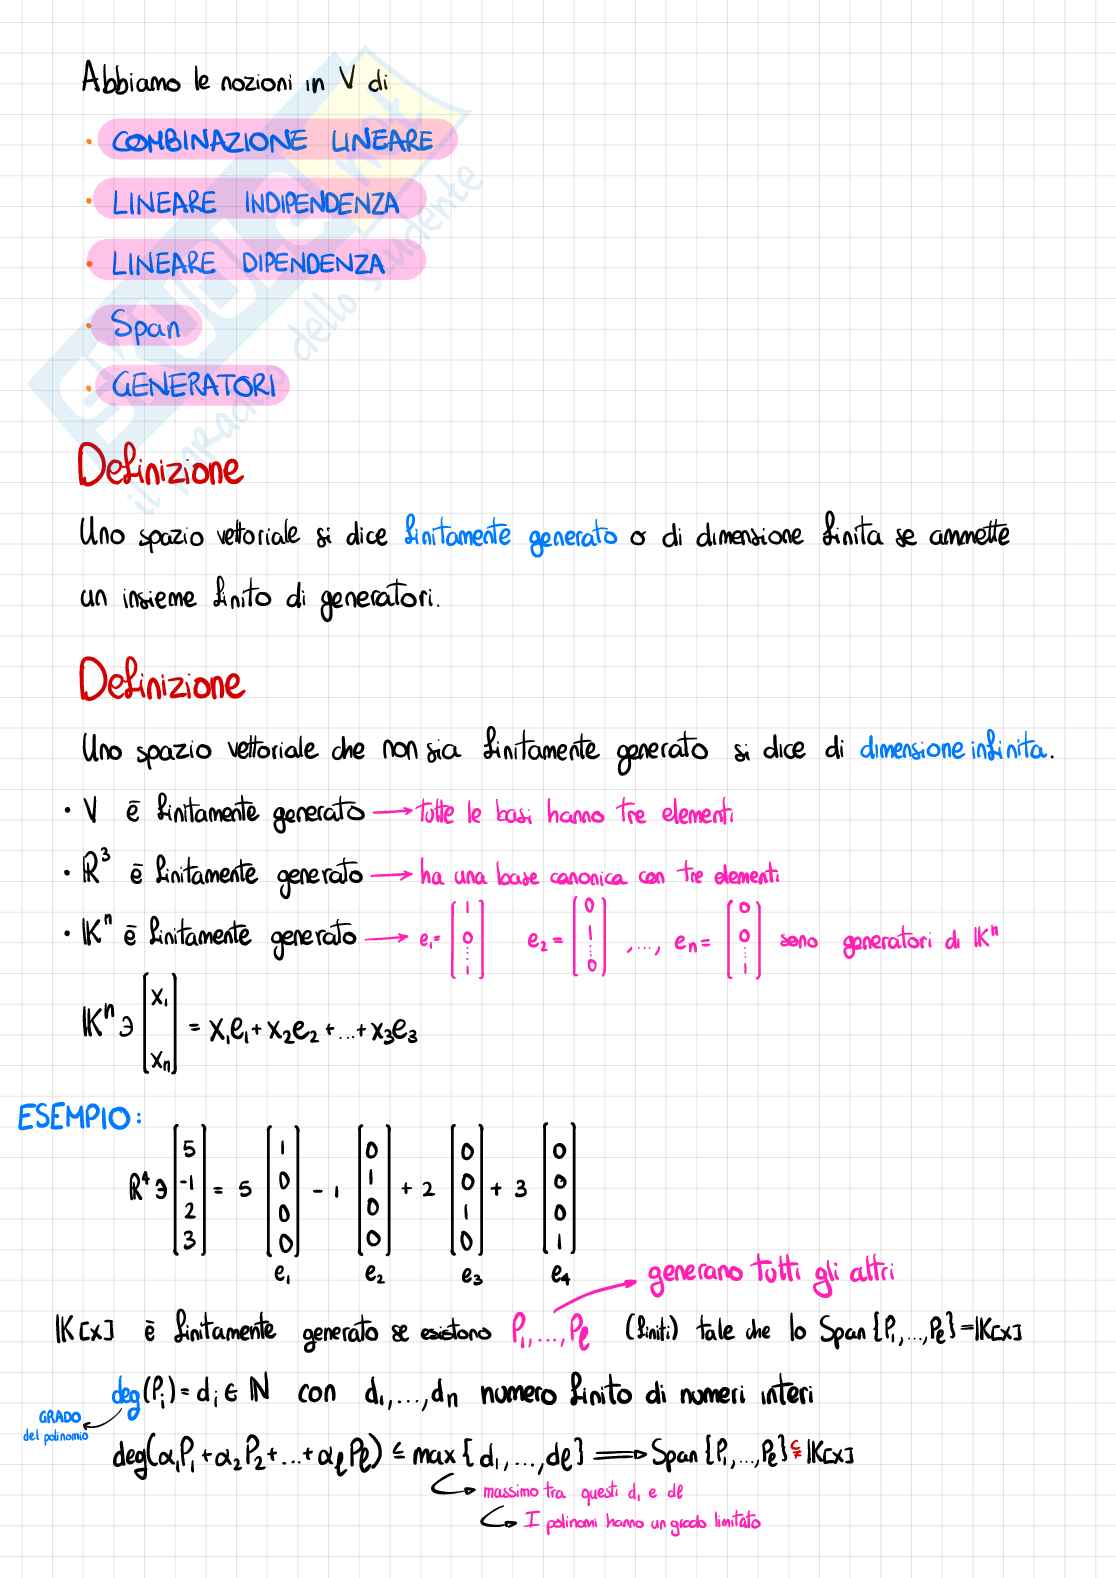 Abbiamo le nozioni in V di
• COMBINAZIONE LINEARE
• LINEARE INDIPENDENZA
• LINEARE DIPENDENZA
• Span
• GENERATORI
Definizione
Uno spazio vettoriale si dice finitamente generato o di dimensione finita se ammette
un insieme finito di generatori.
Definizione
Uno spazio vettoriale che non sia finitamente generato si dice di dimensione infinita.
• V è finitamente generato → tutte le basi hanno tre elementi
• ℝ³ è finitamente generato → ha una base canonica con tre elementi
• 𝕂ⁿ è finitamente generato → e₁= [1 0 ⋮ 1] e₂= [0 1 ⋮ 0] ,..., eₙ= [0 0 ⋮ 1] sono generatori di 𝕂ⁿ
𝕂ⁿ ∋ [x₁ xₙ] = x₁e₁+x₂e₂+...+x₃e₃
ESEMPIO:
ℝ⁴ ∋ [5 -1 2 3] = 5 [1 0 0 0] -1 [0 1 0 0] +2 [0 0 1 0] +3 [0 0 0 1]
e₁ e₂ e₃ e₄
generano tutti gli altri
𝕂[x] è finitamente generato se esistono P₁,...,Pℓ (finiti) tale che lo Span{P₁,...,Pℓ}=𝕂[x]
deg(Pᵢ)=dᵢ∈ℕ con d₁,...,dₙ numero finito di numeri interi
GRADO
del polinomio
deg(α₁P₁+α₂P₂+...+αℓPℓ) ≤ max{d₁,...,dℓ} ⟹ Span{P₁,...,Pℓ}⊊𝕂[x]
massimo tra questi d₁ e dℓ
I polinomi hanno un grado limitato